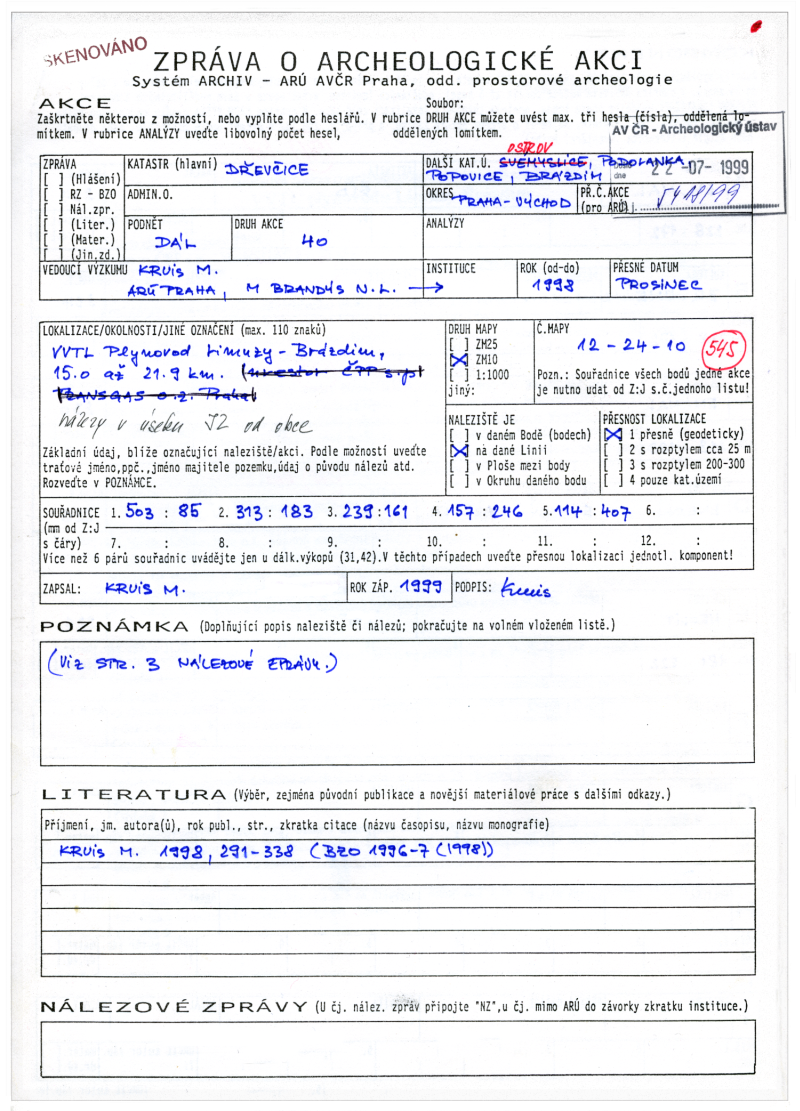 SKENOVÁNO
ZPRÁVA O ARCHEOLOGICKÉ AKCI
Systém ARCHIV – ARÚ AVČR Praha, odd. prostorové archeologie
AKCE Soubor:
Zaškrtněte některou z možností, nebo vyplňte podle heslářů. V rubrice DRUH AKCE můžete uvést max. tři hesla (čísla), oddělená lo-
mítkem. V rubrice ANALÝZY uveďte libovolný počet hesel, oddělených lomítkem.
AV ČR - Archeologický ústav
dne 22 -07- 1999
Č.j. 5418/99
ZPRÁVA
[ ] (Hlášení)
[ ] RZ - BZO
[ ] Nál.zpr.
[ ] (Liter.)
[ ] (Mater.)
[ ] (Jin.zd.)
KATASTR (hlavní) DŘEVČICE
OSTROV
DALŠÍ KAT.Ú. SVÉMYSLICE, PODOLANKA
POPOVICE, BRÁZDIM
ADMIN.O.
OKRES PRAHA-VÝCHOD
PŘ.Č.AKCE
(pro ARÚ)
PODNĚT DÁL
DRUH AKCE 40
ANALÝZY
VEDOUCÍ VÝZKUMU KRUIS M.
ARÚ PRAHA, M BRANDÝS N.L. →
INSTITUCE
ROK (od-do) 1998
PŘESNÉ DATUM PROSINEC
LOKALIZACE/OKOLNOSTI/JINÉ OZNAČENÍ (max. 110 znaků)
VVTL Plynovod Limuzy - Brázdim,
15.0 až 21.9 km. (investor ČPP s.p.
TRANSGAS o.z. Praha)
nálezy v úseku JZ od obce
Základní údaj, blíže označující naleziště/akci. Podle možností uveďte
traťové jméno,ppč.,jméno majitele pozemku,údaj o původu nálezů atd.
Rozveďte v POZNÁMCE.
DRUH MAPY
[ ] ZM25
[X] ZM10
[ ] 1:1000
jiný:
Č.MAPY
12 - 24 - 10 545
Pozn.: Souřadnice všech bodů jedné akce
je nutno udat od Z:J s.č.jednoho listu!
NALEZIŠTĚ JE
[ ] v daném Bodě (bodech)
[X] na dané Linii
[ ] v Ploše mezi body
[ ] v Okruhu daného bodu
PŘESNOST LOKALIZACE
[X] 1 přesně (geodeticky)
[ ] 2 s rozptylem cca 25 m
[ ] 3 s rozptylem 200-300
[ ] 4 pouze kat.území
SOUŘADNICE 1. 503 : 85 2. 313 : 183 3. 239 : 161 4. 157 : 246 5. 114 : 407 6. :
(mm od Z:J
s čáry) 7. : 8. : 9. : 10. : 11. : 12. :
Více než 6 párů souřadnic uvádějte jen u dálk.výkopů (31,42).V těchto případech uveďte přesnou lokalizaci jednotl. komponent!
ZAPSAL: KRUIS M. ROK ZÁP. 1999 PODPIS: Kruis
POZNÁMKA (Doplňující popis naleziště či nálezů; pokračujte na volném vloženém listě.)
(VIZ STR. 3 NÁLEZOVÉ ZPRÁVY.)
LITERATURA (Výběr, zejména původní publikace a novější materiálové práce s dalšími odkazy.)
Příjmení, jm. autora(ů), rok publ., str., zkratka citace (názvu časopisu, názvu monografie)
KRUIS M. 1998, 291-338 (BZO 1996-7 (1998))
NÁLEZOVÉ ZPRÁVY (U čj. nález. zpráv připojte "NZ",u čj. mimo ARÚ do závorky zkratku instituce.)